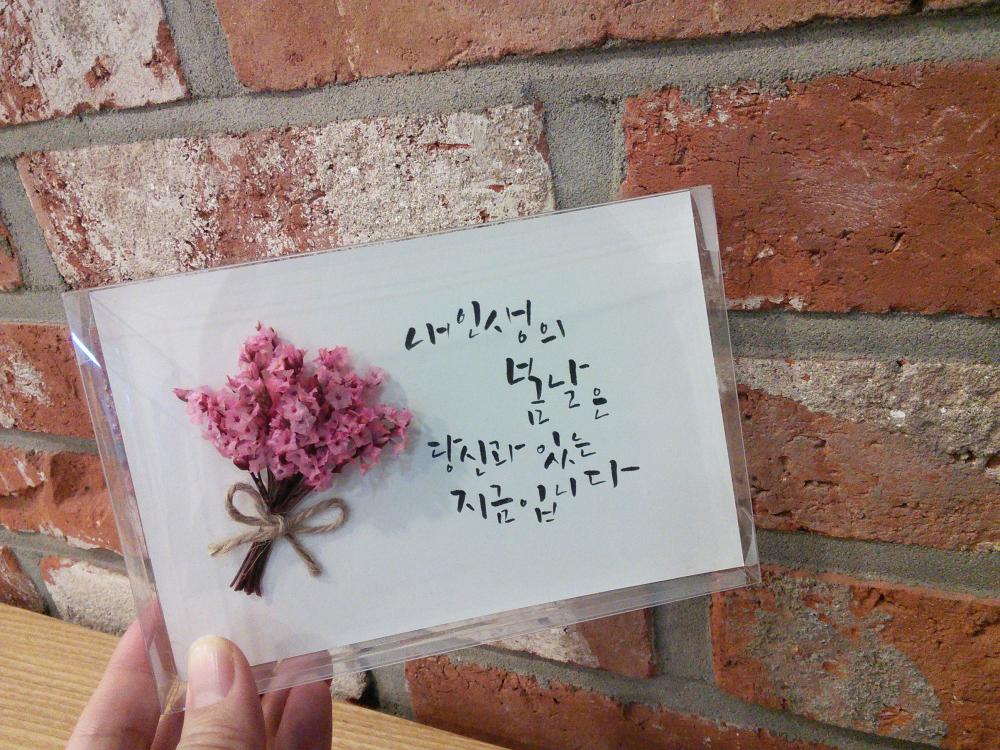 내 인생의
봄날은
당신과 있는
지금입니다